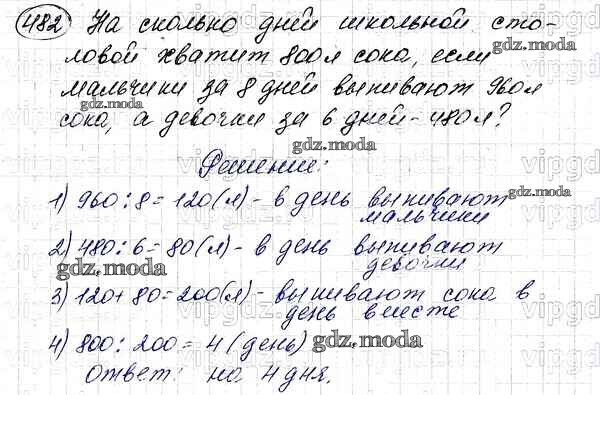 482 На сколько дней школьной сто-
ловой хватит 800л сока, если
мальчики за 8 дней выпивают 960л
gdz.moda
gdz.moda
сока, а девочки за 6 дней - 480л?
gdz.moda
Решение:
gdz.moda
1) 960:8=120(л) - в день выпивают
мальчики
2) 480:6=80(л) - в день выпивают
девочки
gdz.moda
3) 120+80=200(л) - выпивают сока в
день вместе
4) 800:200=4 (день) gdz.moda
Ответ: на 4 дня.